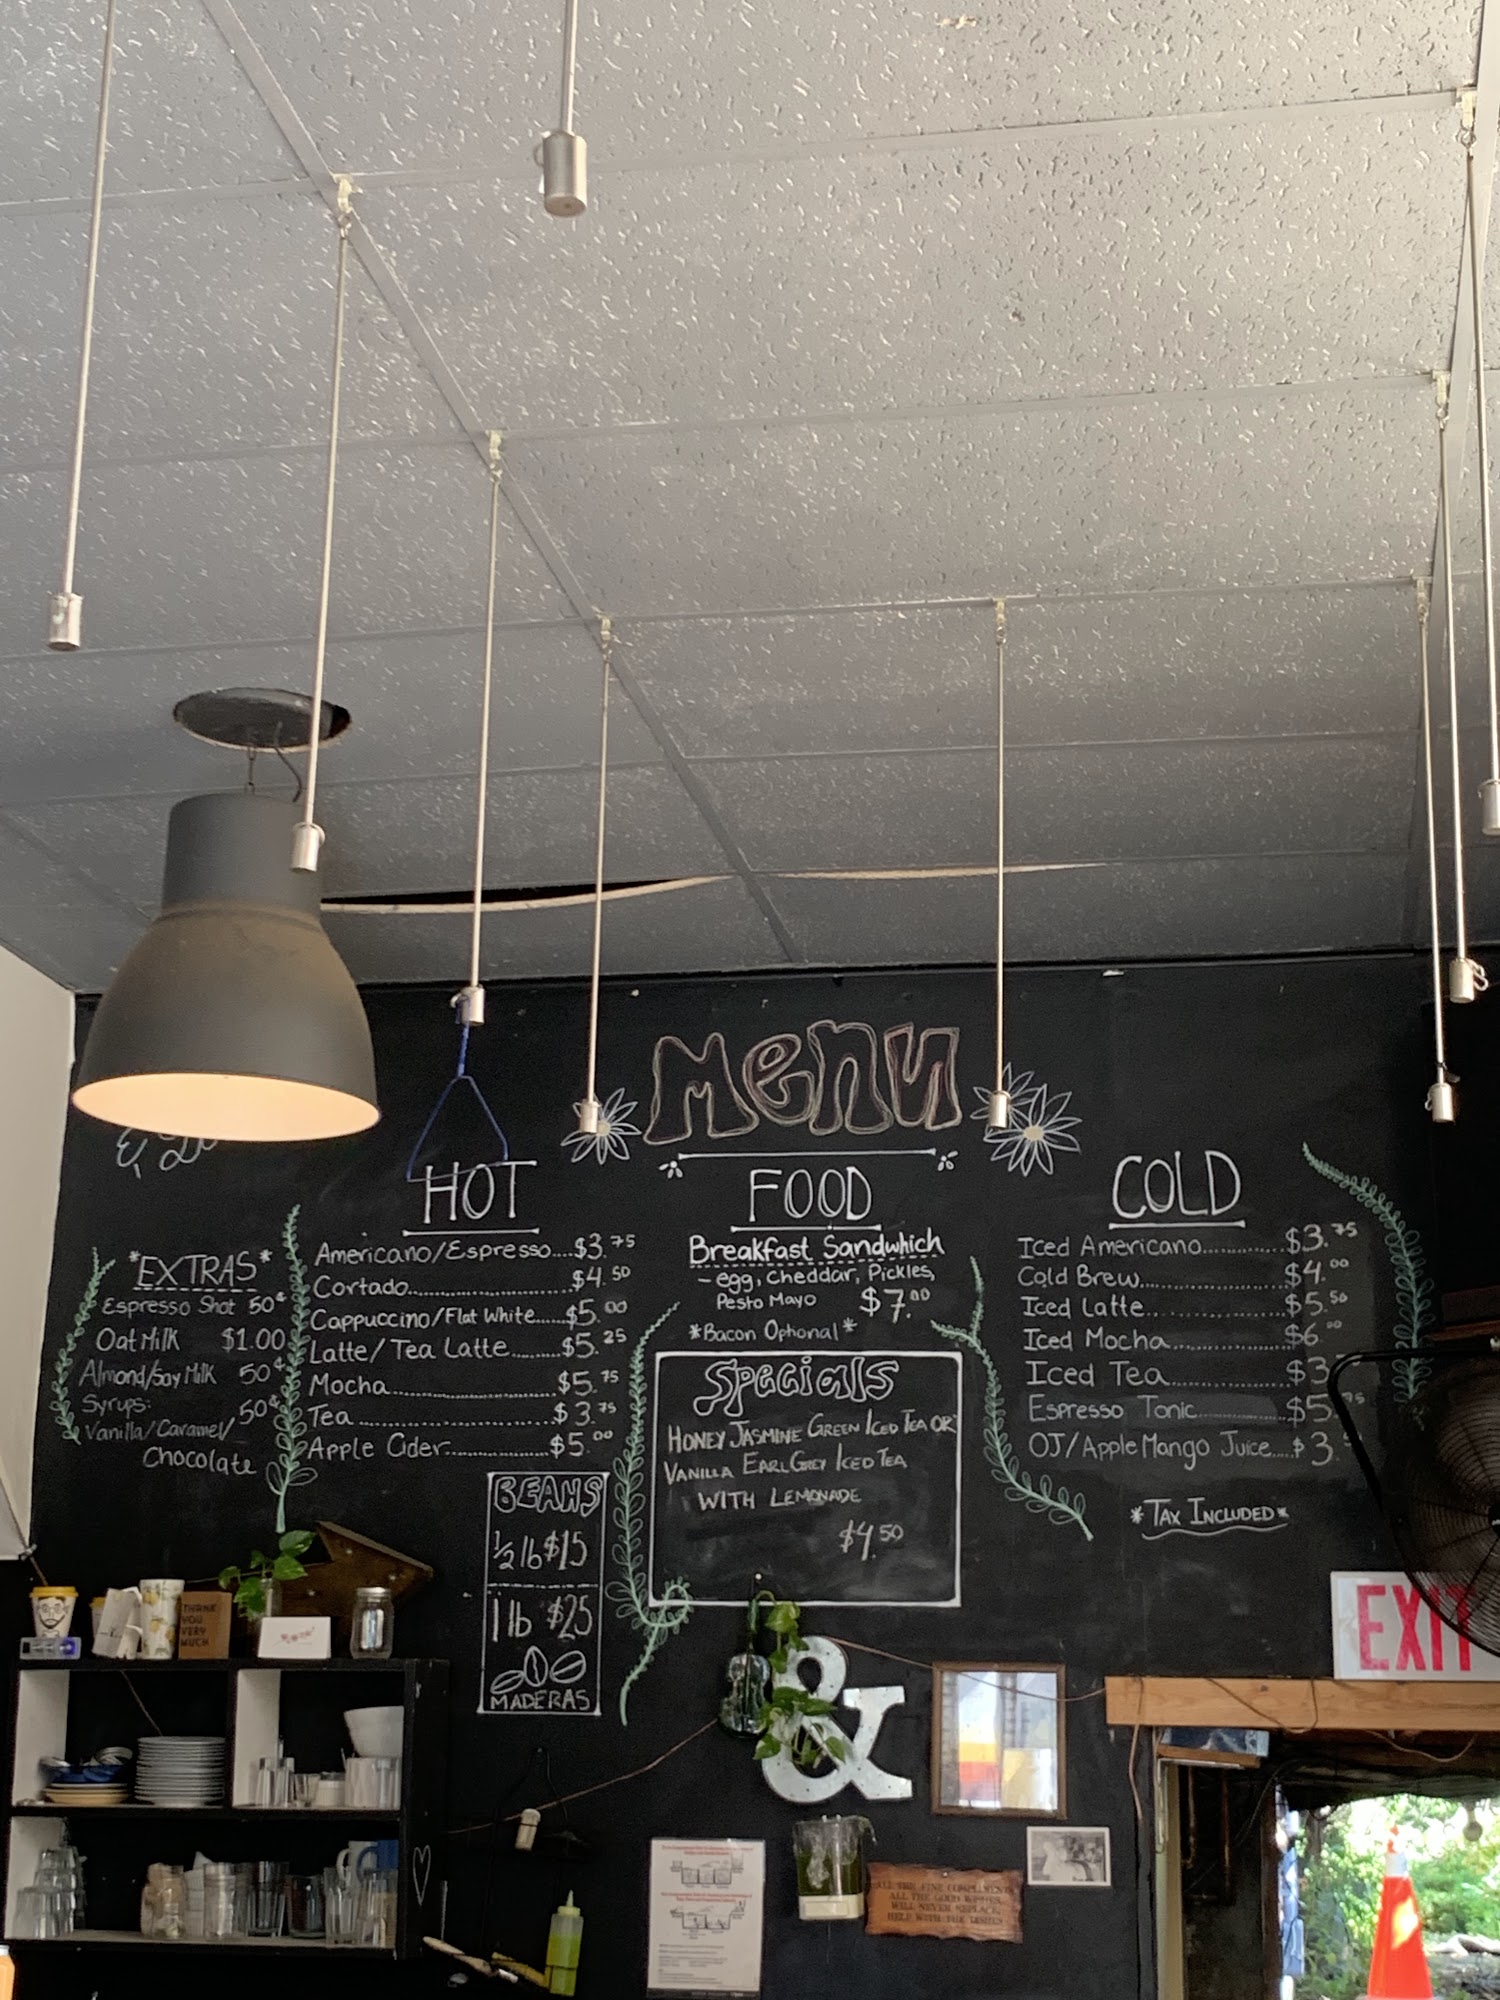 Menu
*EXTRAS*
Espresso Shot 50¢
Oat Milk $1.00
Almond/Soy Milk 50¢
Syrups:
Vanilla/Caramel/ 50¢
Chocolate
HOT
Americano/Espresso....$3.75
Cortado..................$4.50
Cappuccino/Flat White.....$5.00
Latte/Tea Latte........$5.25
Mocha......................$5.75
Tea..........................$3.75
Apple Cider..............$5.00
BEANS
1/2 lb $15
1 lb $25
MADERAS
FOOD
Breakfast Sandwhich
- egg, cheddar, Pickles,
Pesto Mayo $7.00
*Bacon Optional*
Specials
HONEY JASMINE GREEN ICED TEA OR
VANILLA EARL GREY ICED TEA
WITH LEMONADE
$4.50
COLD
Iced Americano............$3.75
Cold Brew...................$4.00
Iced Latte..................$5.50
Iced Mocha................$6.00
Iced Tea..................$3
Espresso Tonic............$5.75
OJ/Apple Mango Juice....$3.
*TAX INCLUDED*
EXIT
THANK
YOU
VERY
MUCH
&
ALL THE FINE COMPLIMENTS
ALL THE GOOD WISHES,
WILL NEVER REPLACE,
HELP WITH THE DISHES